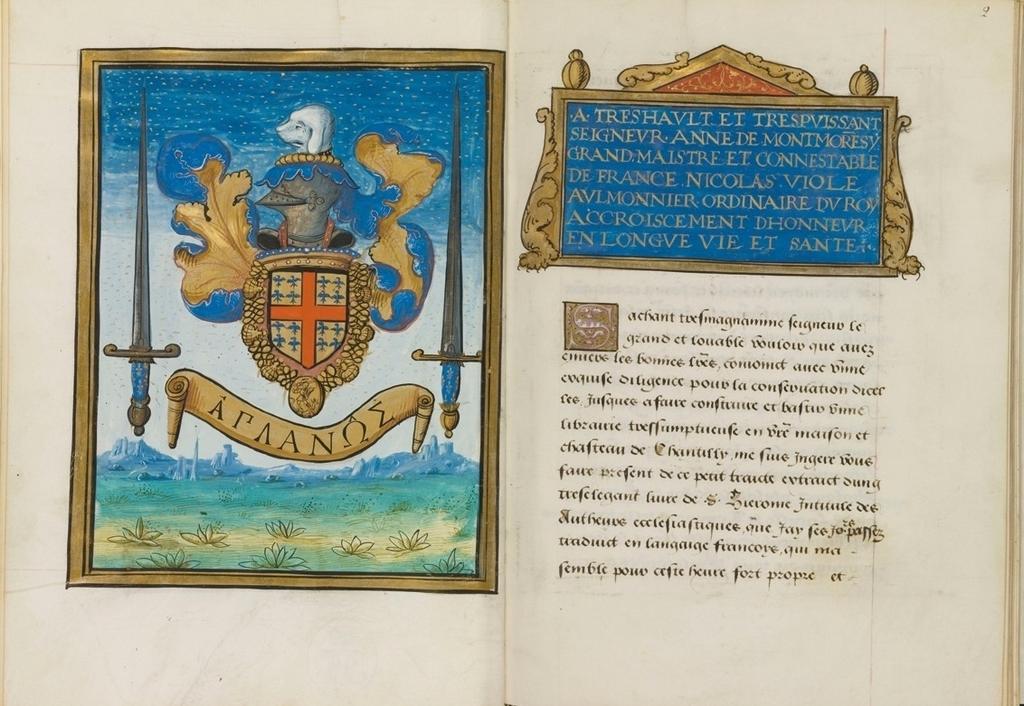 ἈΓΛΑΝΩ͂Σ
2
A. TRESHAVLT. ET TRESPVISSANT
SEIGNEVR. ANNE DE MONTMORE͂SY
GRAND. MAISTRE ET CONNESTABLE
DE FRANCE. NICOLAS VIOLE
AVLMONNIER. ORDINAIRE DV ROY
ACCROISCEMENT DHONNEVR.
EN LONGVE VIE ET SANTE.
Sachant tresmagnanime seigneur le
grand et louable vouloir que auez
enuers les bonnes lr̃es, conioinct auec vnne
exquise diligence pour la conseruation dicel
les, Jusques afaire construire et bastir vnne
librairie tressumptueuse en vr̃e maison et
chasteau de Chantilly, me suis Jngere vous
faire present de ce petit traicte extraict dung
treselegant liure de S. Hierome Jntitule des
Autheurs ecclesiastiques, que Jay ses jours passez
traduict en langaige francoys, qui ma
semble pour ceste heure fort propre et